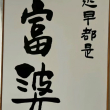 迟早都是
富婆